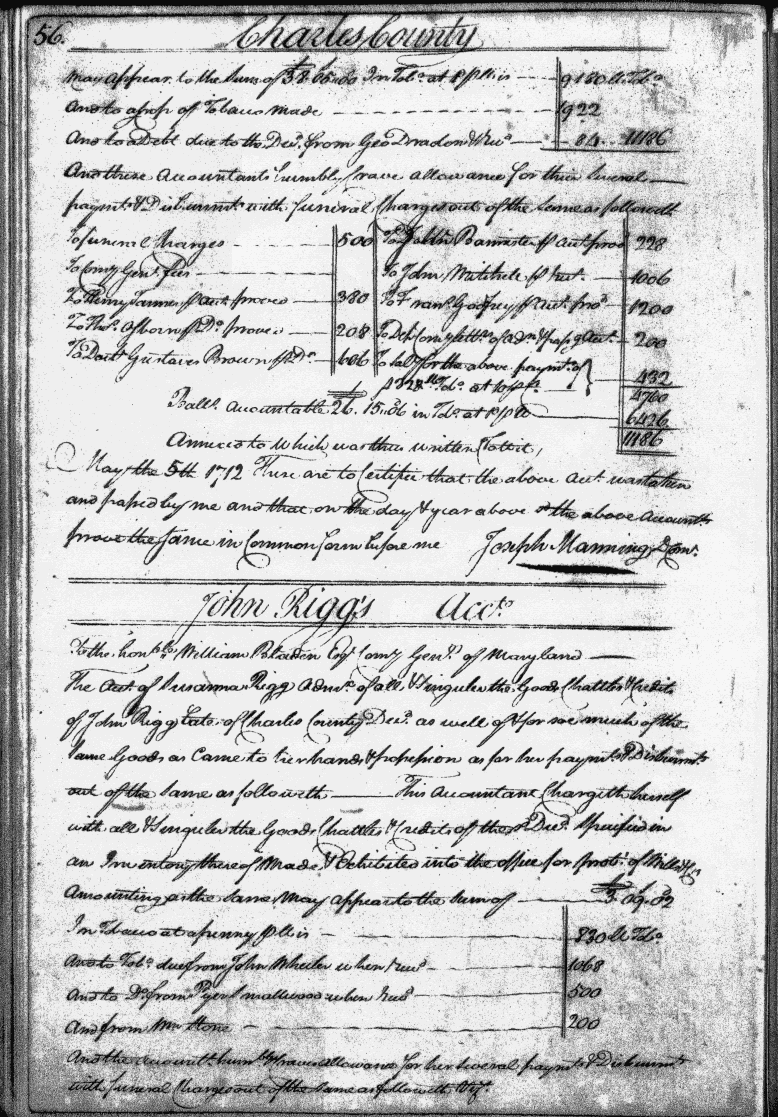 56.
Charles County
May Appear to the Sum of £38.05.00 In Tob.o at 1d p ll is 9180 ll Tob.o
And to a Crop of Tobacco made 1922
And to a Debt due to the Dec.d from Geo Dradon 84 11186
And these Accountants humbly Crave allowance for their Several
paym.ts & Disburmts with funeral Charges out of the Same as followeth
To funeral Charges 500 To John Banister p Acc.t prov'd 228
To Comy Gen.l fees To John Mitchell p Acc.t 1006
To Henry Tanner p Acc.t proved 380 To Fran.s Godfrey p Acc.t prov.d 1200
To Tho.s Osborn p D.o proved 208 To Dep Comy Lett.s of adm & pasg Acc.t 200
To Doct.r Gustavus Brown p D.o 606 To Sal for the above paym.ts of
ll Tob.o at 10 p C.t 432
4760
Ball.a Accountable 26.15.06 in Tob.o at 1d p ll 6426
11186
Annexed to which was thus written Towit,
May the 5th 1712 These are to Certifie that the above Acc.t was taken
and passed by me and that on the day & year above the above Account.ts
prove the Same in Common form before me Joseph Manning D Com.r
John Rigg's Acc.t
To the hon.ble William Bladen Esq.r Comy Gen.ll of Maryland
The Acc.t of Susanna Rigg Adm.x of all & Singular the Goods Chattles & Credits
of John Rigg Late of Charles County Dec.d as well of & for soe much of the
Same Goods as Came to her hands & possession as for her paym.ts & Disburmts
out of the Same as followeth This Accountant Chargeth herself
with all & Singular the Goods Chattles & Credits of the s.d Dec.d Specified in
an Inventory thereof Made & Exhibited into the office for prob.t of Wills &c
Amounting as the Same May appear to the Sum of £3.09.02
In Tobacco at a penny p ll is 830 ll Tob.o
And to Tob.o due from John Wheeler when rec.d 1068
And to D.o from Pyer Smallwood when rec.d 500
And from Mr Stone 200
And the Account.t humbly Craves allowance for her Several paym.ts & Disburmts
with funeral Charges out of the Same as followeth Viz.t